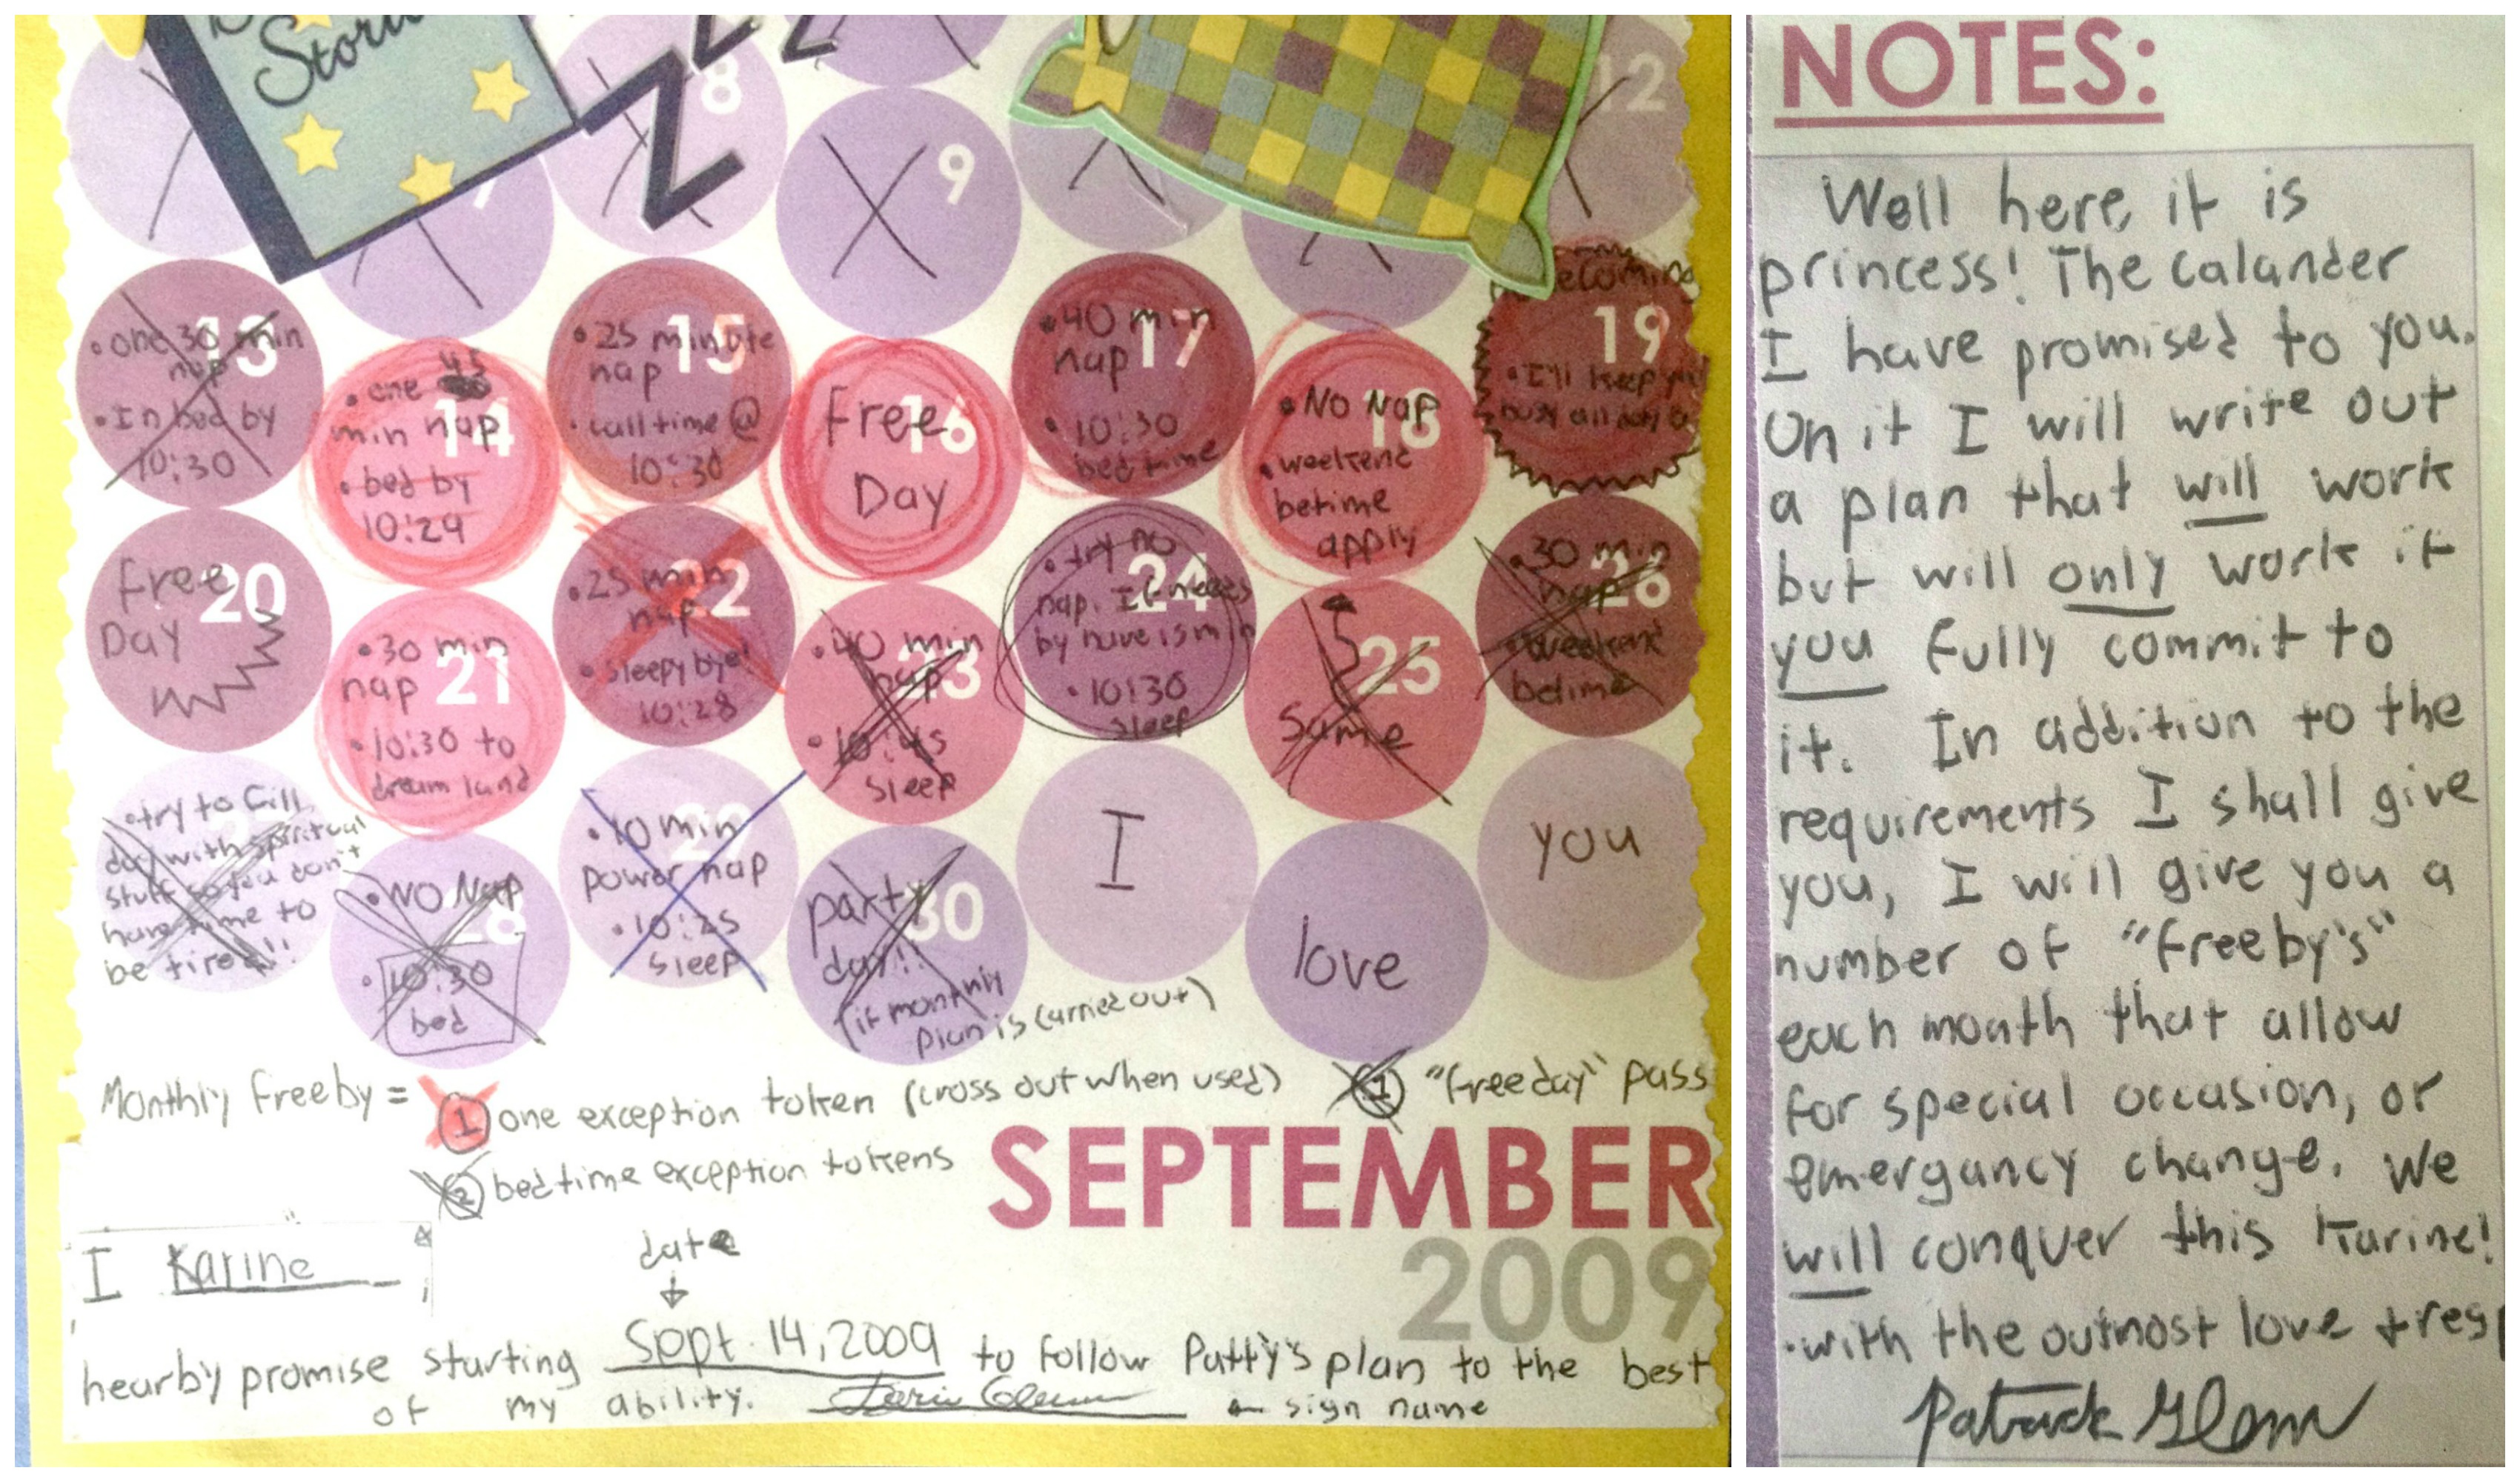 Stori
8
9
12
13
• one 30 min
nap
• In bed by
10:30
14
• one 45
min nap
• bed by
10:29
15
• 25 minute
nap
• call time @
10:30
16
Free
Day
17
• 40 min
nap
• 10:30
bed time
18
• No Nap
• weekend
betime
apply
19
• I'll keep you
busy all day
20
free
Day
21
• 30 min
nap
• 10:30 to
dream land
22
• 25 min
nap
• sleepy bye!
10:28
23
• 40 min
nap
• 10:45
sleep
24
• try no
nap. If needs
by have 15 min
• 10:30
sleep
25
same
26
• 30 min
nap
• weekend
betime
• try to fill
day with spiritual
stuff so you don't
have time to
be tired!!
28
• NO Nap
• 10:30
bed
29
• 10 min
power nap
• 10:25
sleep
30
party
day!!
(if monthly
plan is carried out)
I
love
you
Monthly freeby = 1 one exception token (cross out when used) 1 "free day" pass
2 bedtime exception tokens
SEPTEMBER
2009
I Karine,
date
hearby promise starting Sept. 14, 2009 to follow Patty's plan to the best
of my ability. ← sign name
NOTES:
Well here it is
princess! The calander
I have promised to you.
On it I will write out
a plan that will work
but will only work if
you fully commit to
it. In addition to the
requirements I shall give
you, I will give you a
number of "freeby's"
each month that allow
for special occasion, or
emergancy change. We
will conquer this Karine!
•with the outmost love + resp
Patrick Glem